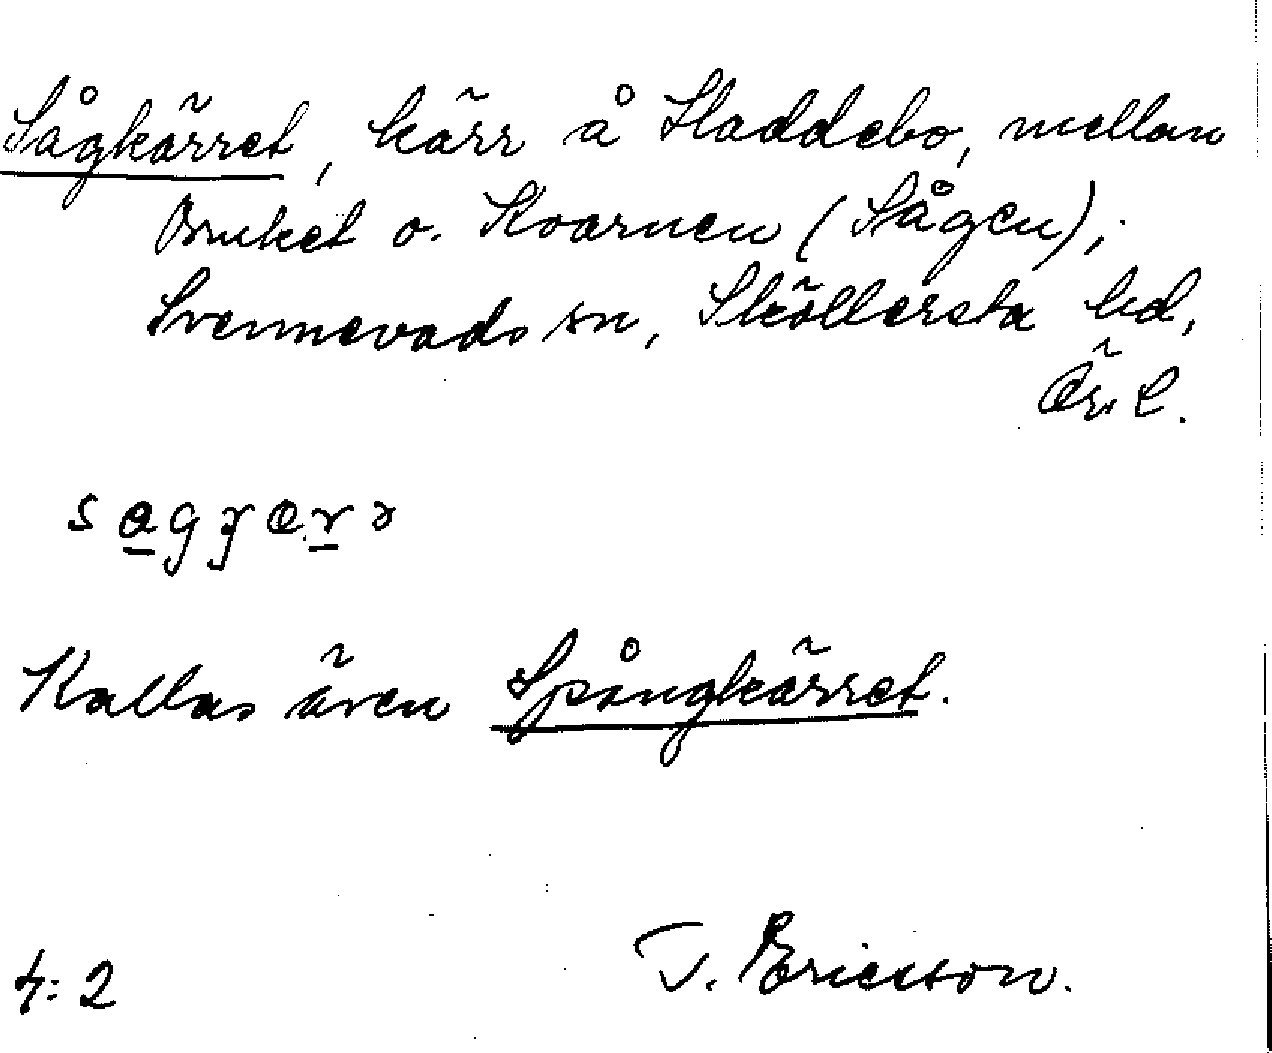 Sågkärret, kärr å Haddebo, mellan
Bruket o. Kvarnen (Sågen);
Svennevads sn, Sköllersta hd,
Ör. L.
Kallas även Spångkärret.
4:2 T. Ericsson.